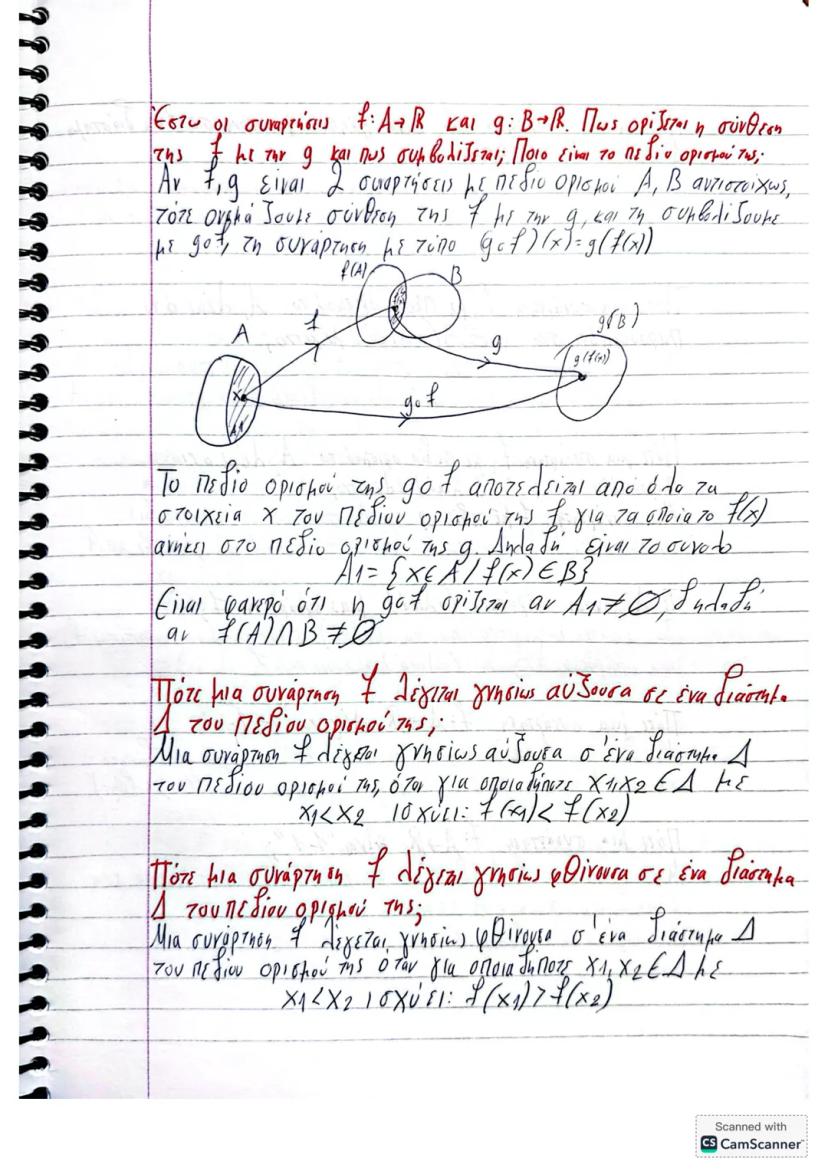 Έστω οι συναρτήσεις f: A→ℝ και g: B→ℝ. Πως ορίζεται η σύνθεση
της f με την g και πως συμβολίζεται; Ποιο είναι το πεδίο ορισμού της;
Αν f, g είναι 2 συναρτήσεις με πεδίο ορισμού A, B αντιστοίχως,
τότε ονομάζουμε σύνθεση της f με την g, και τη συμβολίζουμε
με gof, τη συνάρτηση με τύπο (gof)(x)=g(f(x))
f(A) B
A f g g(B)
g(f(x))
x gof
A1
Το πεδίο ορισμού της gof αποτελείται από όλα τα
στοιχεία x του πεδίου ορισμού της f για τα οποία το f(x)
ανήκει στο πεδίο ορισμού της g. Δηλαδή είναι το συνολο
A1 = {x∈A / f(x)∈B}
Είναι φανερό ότι η gof ορίζεται αν A1≠∅, δηλαδή
αν f(A)∩B≠∅
Πότε μια συνάρτηση f λέγεται γνησίως αύξουσα σε ένα διάστημα
Δ του πεδίου ορισμού της;
Μια συνάρτηση f λέγεται γνησίως αύξουσα σ'ένα διάστημα Δ
του πεδίου ορισμού της, όταν για οποιαδήποτε x1,x2∈Δ με
x1<x2 ισχύει: f(x1)<f(x2)
Πότε μια συνάρτηση f λέγεται γνησίως φθίνουσα σε ένα διάστημα
Δ του πεδίου ορισμού της;
Μια συνάρτηση f λέγεται γνησίως φθίνουσα σ'ένα διάστημα Δ
του πεδίου ορισμού της όταν για οποιαδήποτε x1,x2∈Δ με
x1<x2 ισχύει: f(x1)>f(x2)
Scanned with
CS CamScanner